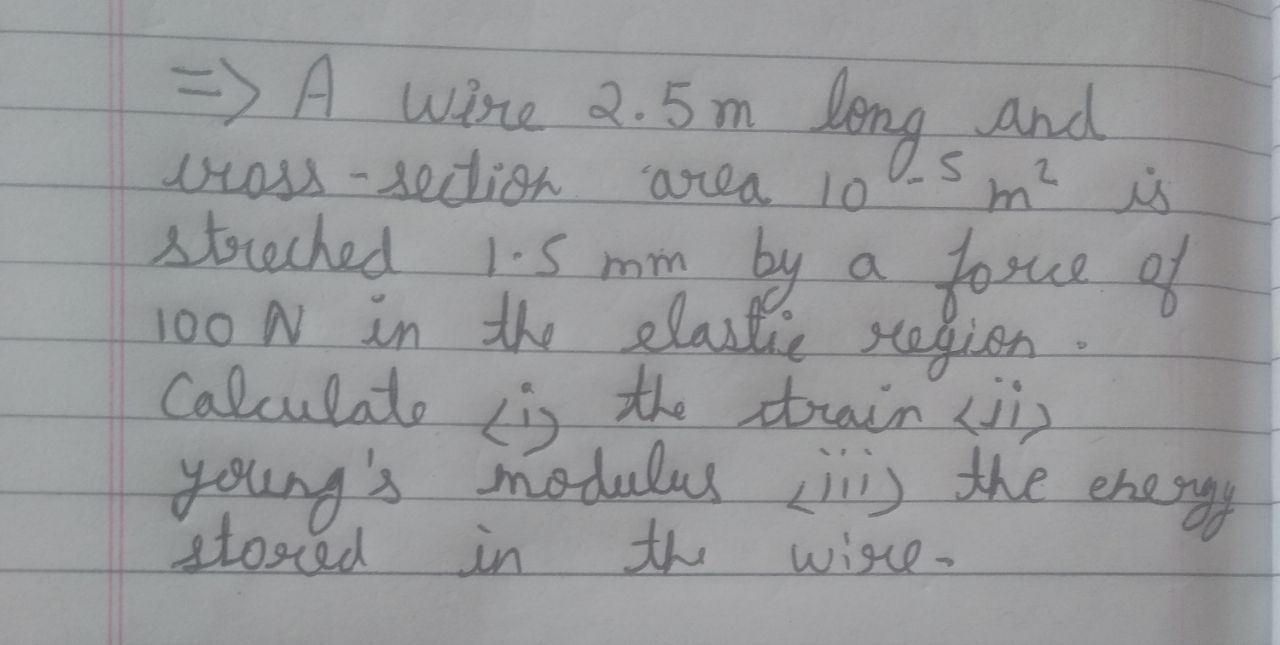 => A wire 2.5m long and
cross-section area 10⁻⁵ m² is
streched 1.5 mm by a force of
100 N in the elastic region.
Calculate (i) the strain (ii)
young's modulus (iii) the energy
stored in the wire.